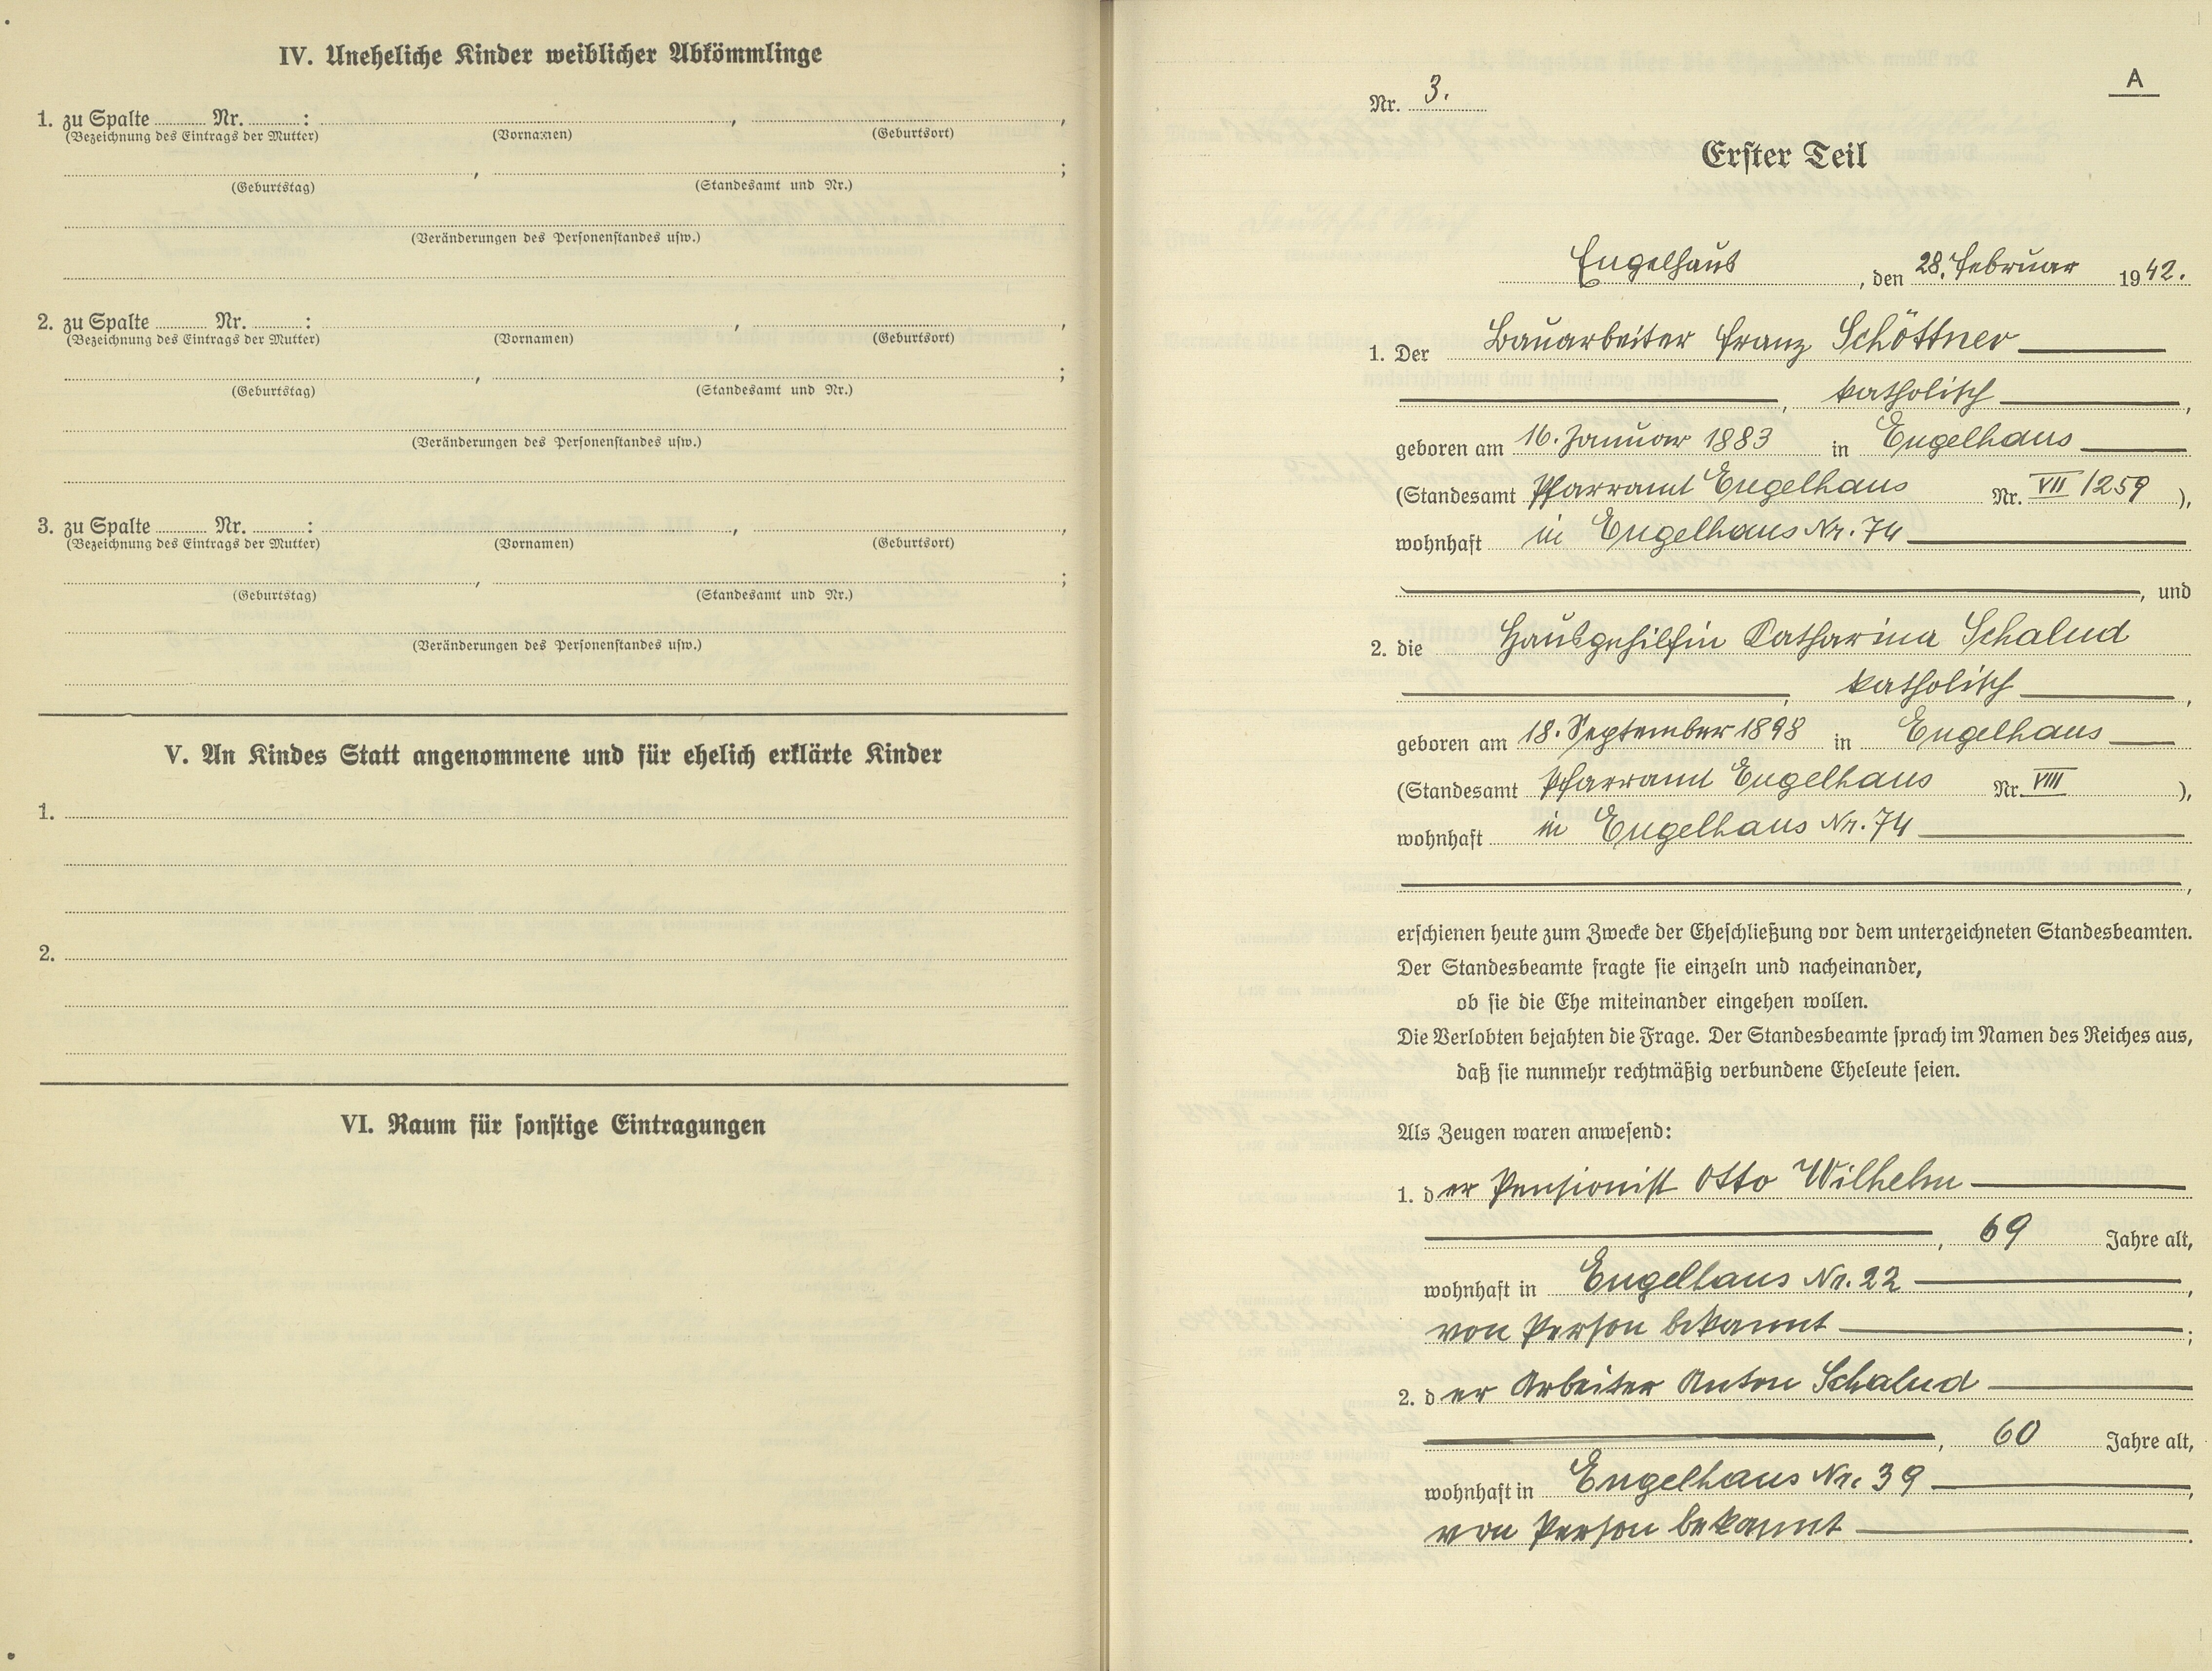 IV. Uneheliche Kinder weiblicher Abkömmlinge
1. zu Spalte ........ Nr. ........ : ........ , ........ ,
(Bezeichnung des Eintrags der Mutter) (Vornamen) (Geburtsort)
........ , ........ ;
(Geburtstag) (Standesamt und Nr.)
(Veränderungen des Personenstandes usw.)
2. zu Spalte ........ Nr. ........ : ........ , ........ ,
(Bezeichnung des Eintrags der Mutter) (Vornamen) (Geburtsort)
........ , ........ ;
(Geburtstag) (Standesamt und Nr.)
(Veränderungen des Personenstandes usw.)
3. zu Spalte ........ Nr. ........ : ........ , ........ ,
(Bezeichnung des Eintrags der Mutter) (Vornamen) (Geburtsort)
........ , ........ ;
(Geburtstag) (Standesamt und Nr.)
(Veränderungen des Personenstandes usw.)
V. An Kindes Statt angenommene und für ehelich erklärte Kinder
1.
2.
VI. Raum für sonstige Eintragungen
A
Nr. 3.
Erster Teil
Engelhaus, den 28. Februar 1942.
1. Der Bauarbeiter Franz Schöttner
, katholisch ,
geboren am 16. Januar 1883 in Engelhaus
(Standesamt Pfarramt Engelhaus Nr. VII/259 ),
wohnhaft in Engelhaus Nr. 74
, und
2. die Hausgehilfin Katharina Schalud
, katholisch ,
geboren am 18. September 1898 in Engelhaus
(Standesamt Pfarramt Engelhaus Nr. VIII ),
wohnhaft in Engelhaus Nr. 74
,
erschienen heute zum Zwecke der Eheschließung vor dem unterzeichneten Standesbeamten.
Der Standesbeamte fragte sie einzeln und nacheinander,
ob sie die Ehe miteinander eingehen wollen.
Die Verlobten bejahten die Frage. Der Standesbeamte sprach im Namen des Reiches aus,
daß sie nunmehr rechtmäßig verbundene Eheleute seien.
Als Zeugen waren anwesend:
1. der Pensionist Otto Wilhelm
, 69 Jahre alt,
wohnhaft in Engelhaus Nr. 22 ,
von Person bekannt ;
2. der Arbeiter Anton Schalud
, 60 Jahre alt,
wohnhaft in Engelhaus Nr. 39 ,
von Person bekannt .